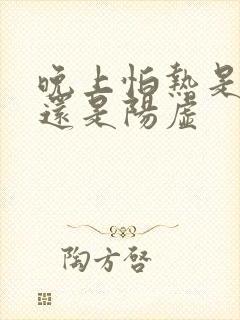 晚上怕熱是
還是陽虛
陶方啓